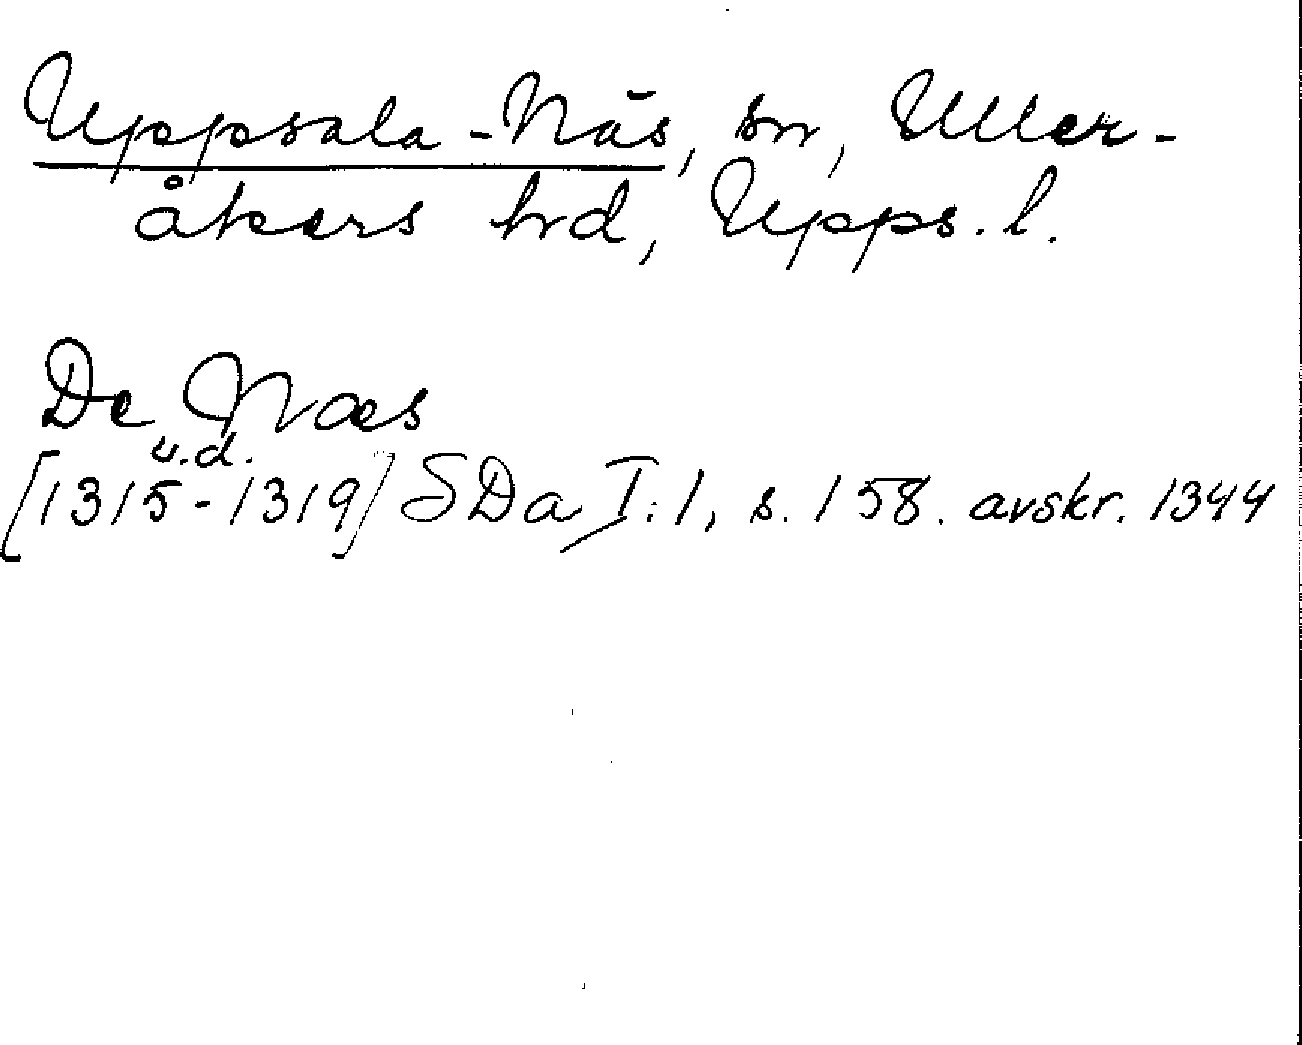 Uppsala-Näs, sn, Uller-
åkers hd, Upps. l.
De Næs
u.d.
[1315-1319] SDa I:1, s. 158. avskr. 1344